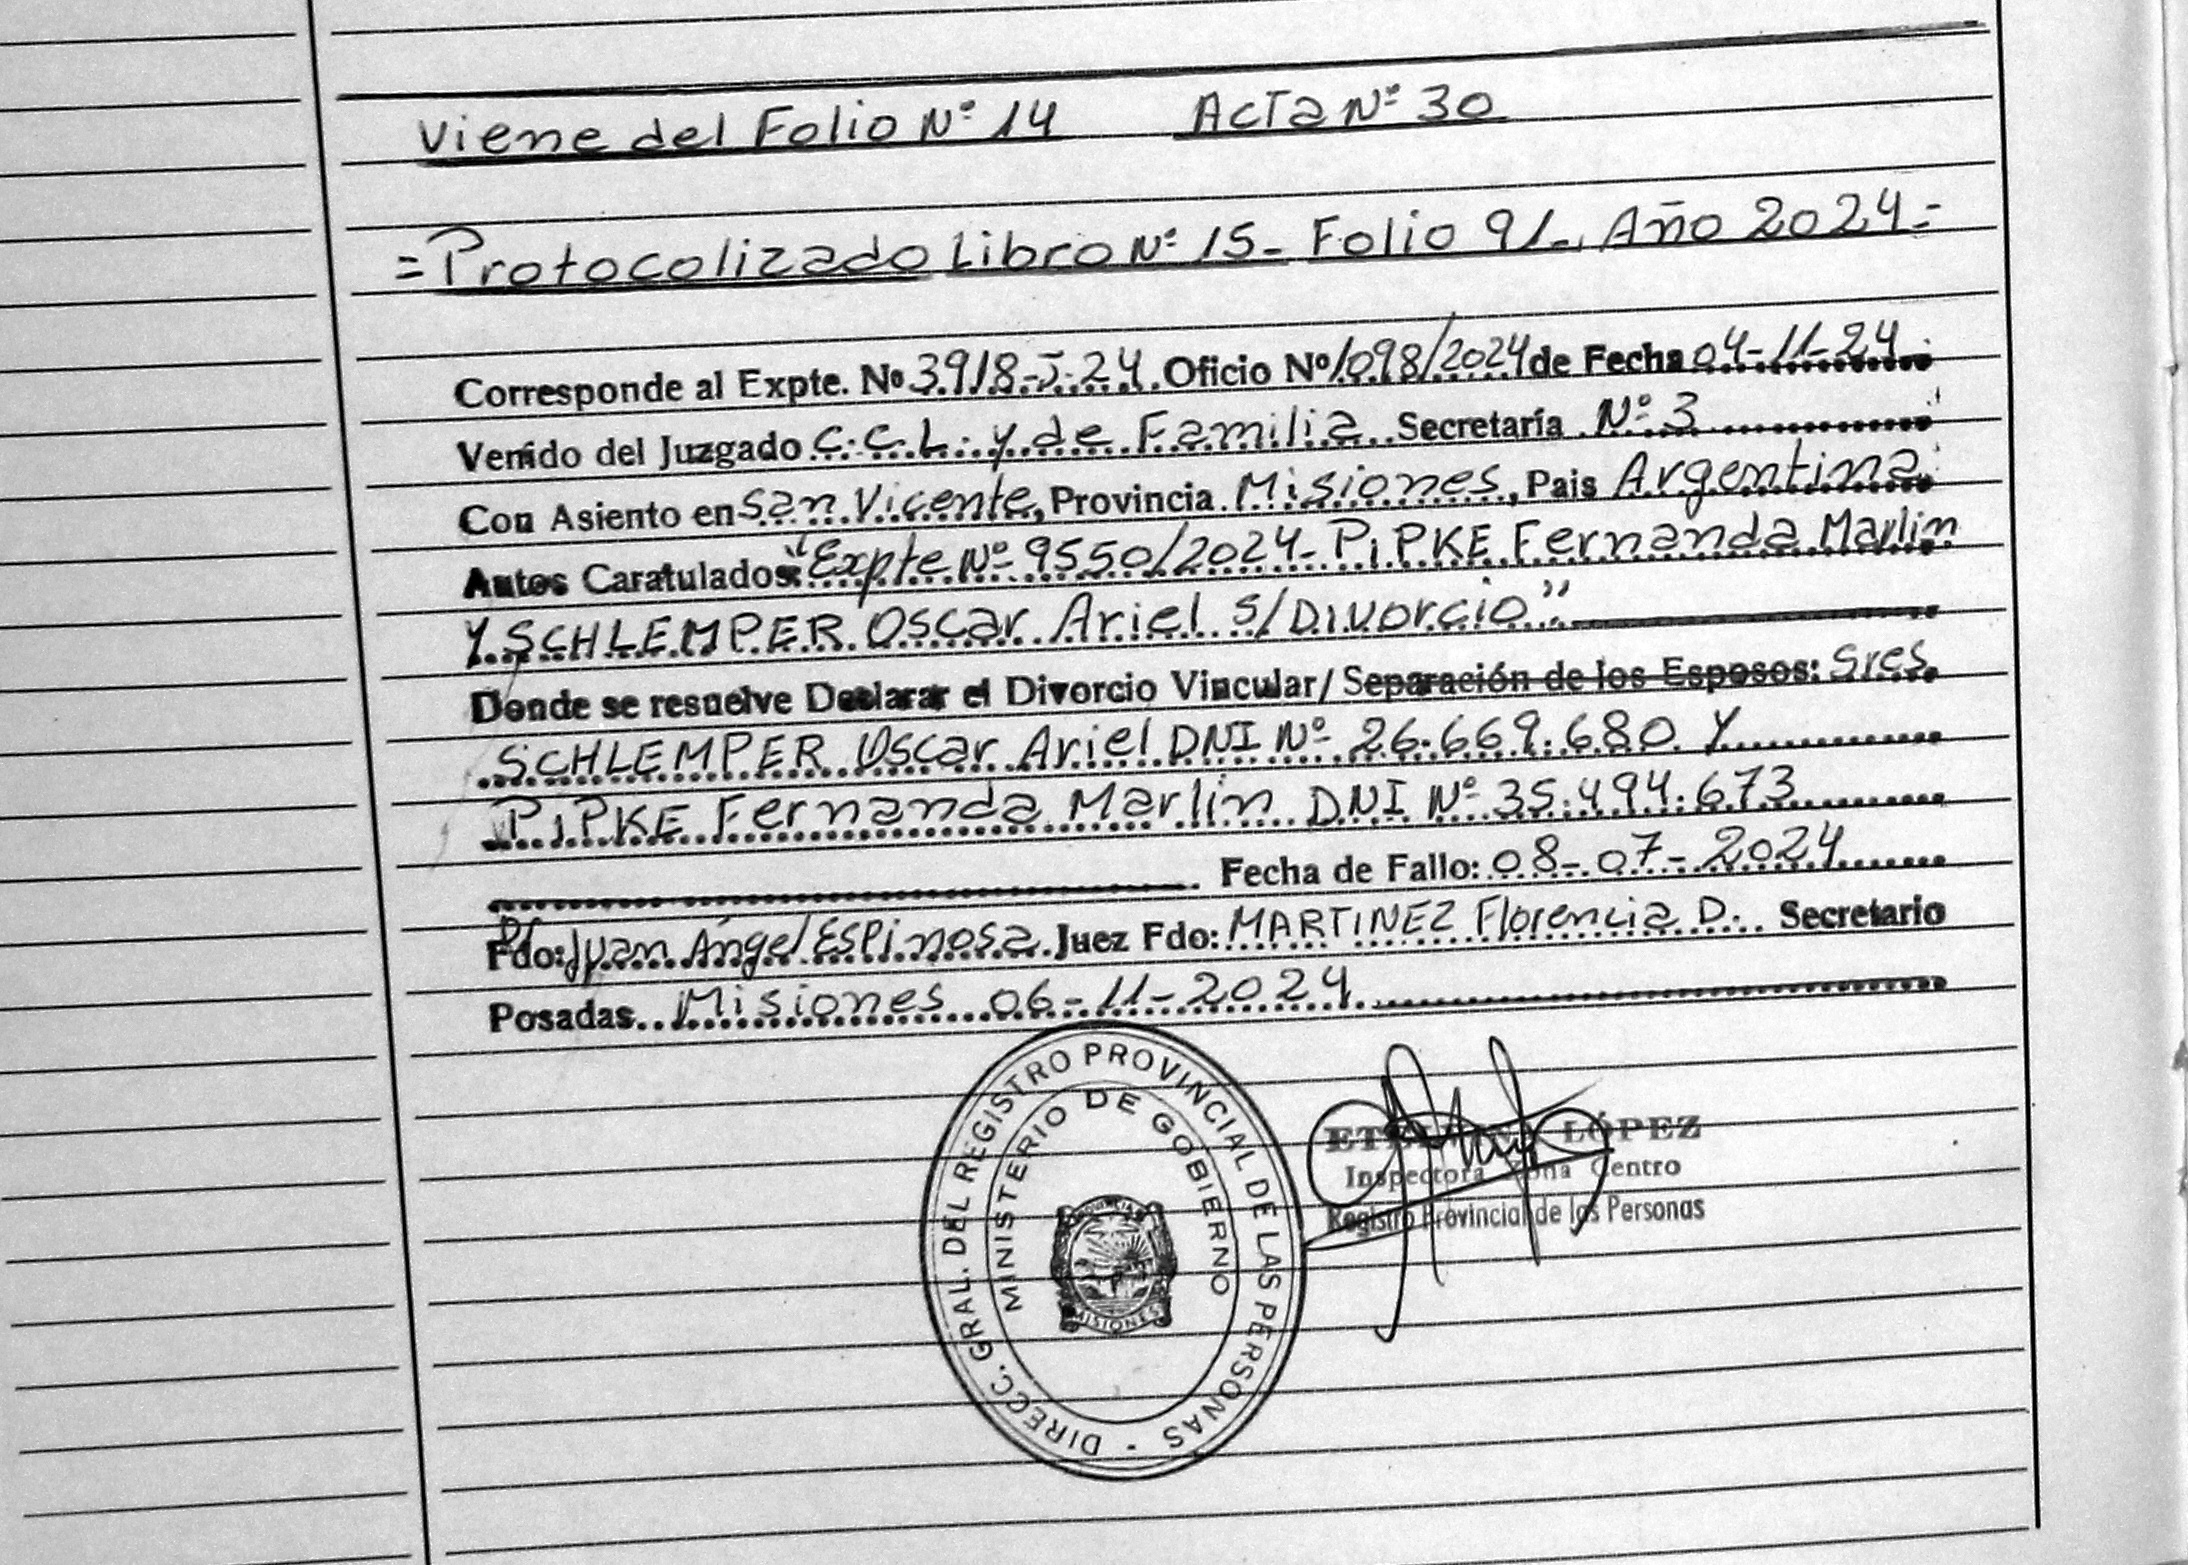 Viene del Folio Nº 14 Acta Nº 30
= Protocolizado Libro Nº 15 - Folio 91 -. Año 2024 =
Corresponde al Expte. Nº 3918-J-24. Oficio Nº 1098/2024 de Fecha 04-11-24
Venido del Juzgado C.C.L. y de Familia. Secretaría Nº 3
Con Asiento en San Vicente, Provincia Misiones, Pais Argentina
Autos Caratulados: "Expte Nº 9550/2024 - PIPKE Fernanda Marlin
Y SCHLEMPER Oscar Ariel s/Divorcio"
Donde se resuelve Declarar el Divorcio Vincular/ Separación de los Esposos: Sres.
SCHLEMPER Oscar Ariel DNI Nº 26.669.680 Y
PIPKE Fernanda Marlin DNI Nº 35.494.673
Fecha de Fallo: 08-07-2024
Fdo: Dr Juan Ángel ESPINOSA. Juez Fdo: MARTINEZ Florencia D. Secretario
Posadas. Misiones 06-11-2024
DIRECC. GRAL. DEL REGISTRO PROVINCIAL DE LAS PERSONAS -
MINISTERIO DE GOBIERNO
PROVINCIA
MISIONES
LÓPEZ
Inspectora Zona Centro
Registro Provincial de las Personas